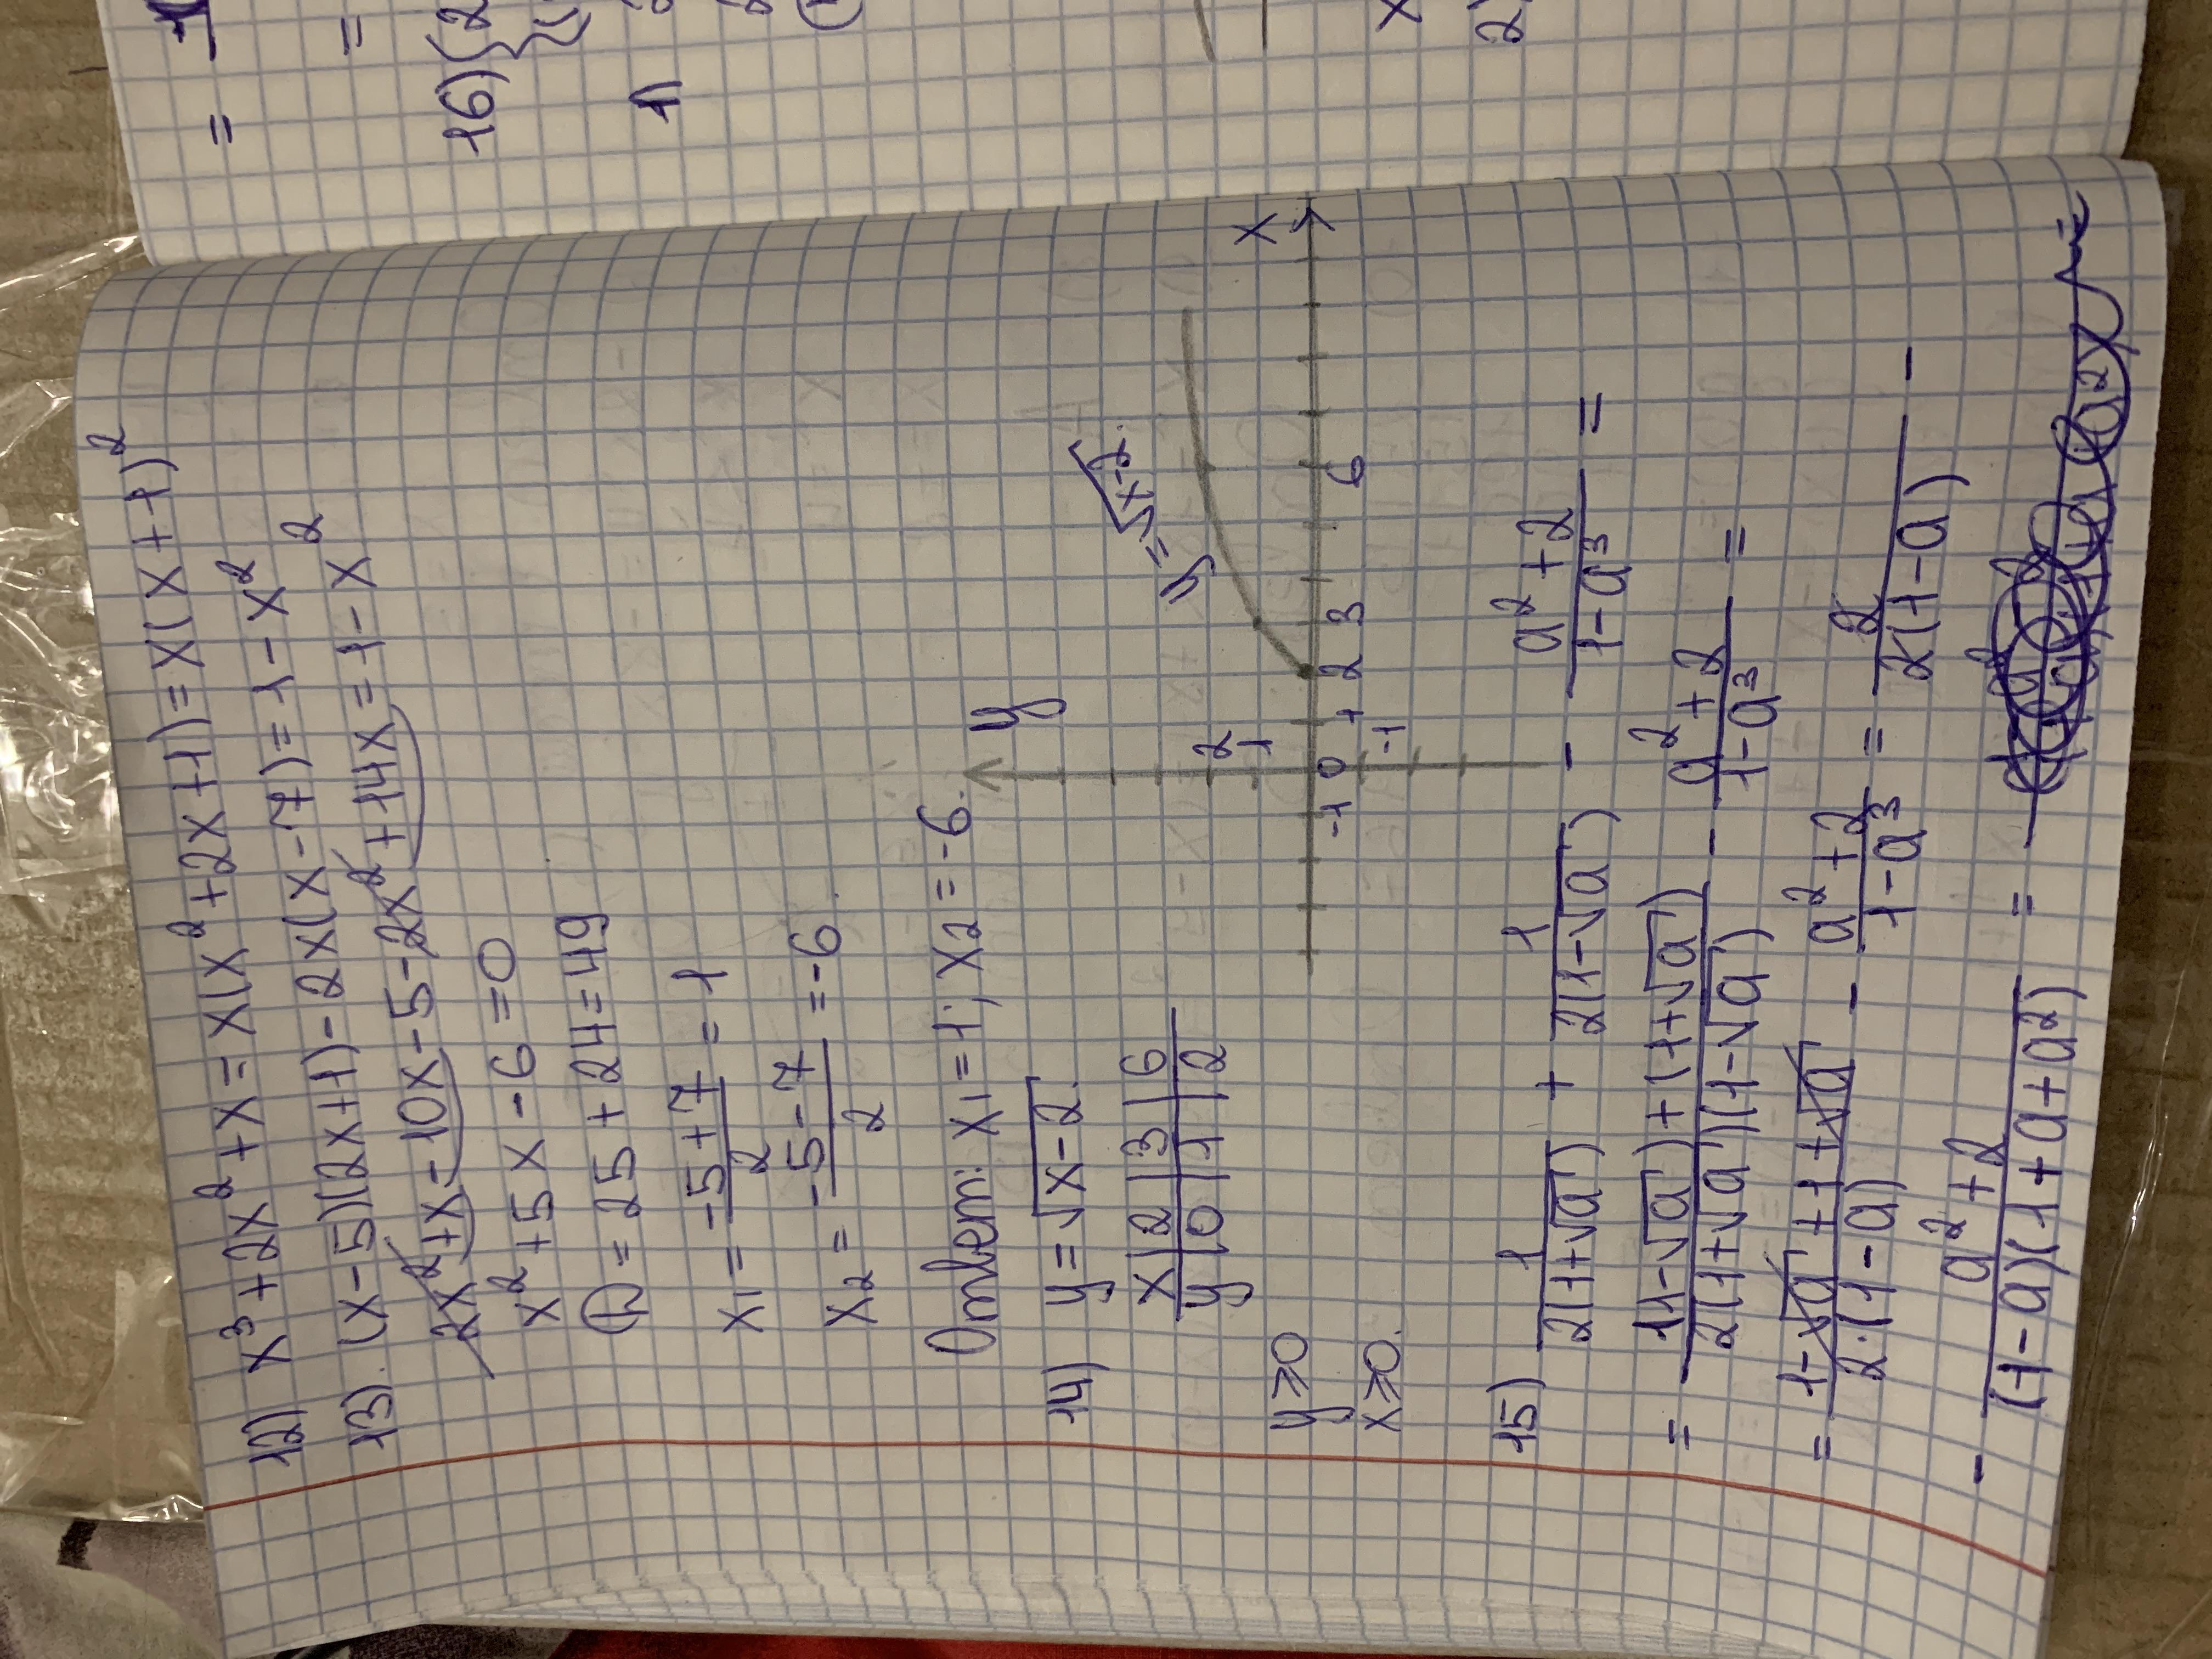 12) x³+2x²+x=x(x²+2x+1)=x(x+1)²
13). (x-5)(2x+1)-2x(x-7)=1-x²
2x²+x-10x-5-2x²+14x=1-x²
x²+5x-6=0
D=25+24=49
x₁=(-5+7)/2=1
x₂=(-5-7)/2=-6.
Ответ: x₁=1; x₂=-6.
14) y=√(x-2)
x|2|3|6
y|0|1|2
y≥0
x≥0.
y
x
y=√(x-2).
2
1
-1 0 1 2 3 6
-1
15) 1/(2(1+√a)) + 1/(2(1-√a)) - (a²+2)/(1-a³) =
= (1(1-√a)+(1+√a))/(2(1+√a)(1-√a)) - (a²+2)/(1-a³) =
= (1-√a+1+√a)/(2·(1-a)) - (a²+2)/(1-a³) = 2/(2(1-a)) -
- (a²+2)/((1-a)(1+a+a²)) =
=
=
16) (2
1)
x
2)